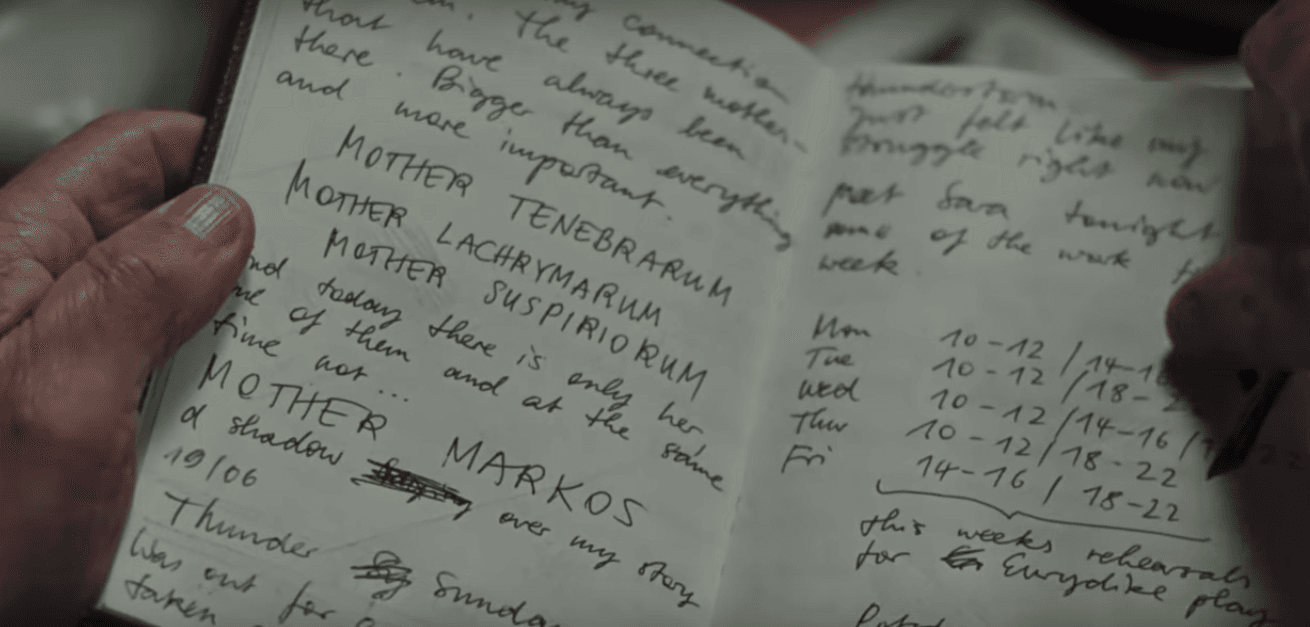 my connection
The three mother-
that have always been
there. Bigger than everything
and more important.
MOTHER TENEBRARUM
MOTHER LACHRYMARUM
MOTHER SUSPIRIORUM
and today there is only her,
one of them and at the same
time not...
MOTHER MARKOS
a shadow over my story
19/06
Thunder Sunda
Was out for
taken
thunderstorm
Just felt like my
struggle right now
meet Sara tonight
some of the work
week.
Mon 10-12 / 14-1
Tue 10-12 / 18-2
Wed 10-12 / 14-16 /
Thur 10-12 / 18-22
Fri 14-16 / 18-22
this weeks rehearsals
for Eurydike play